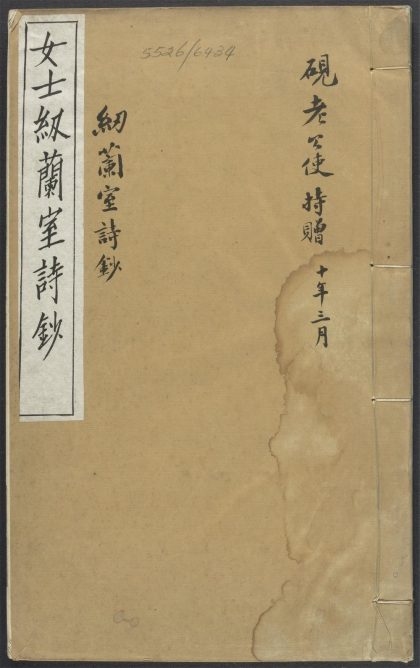 硯老公使持贈
十年三月
5526/6934
紉蘭室詩鈔
女士紉蘭室詩鈔